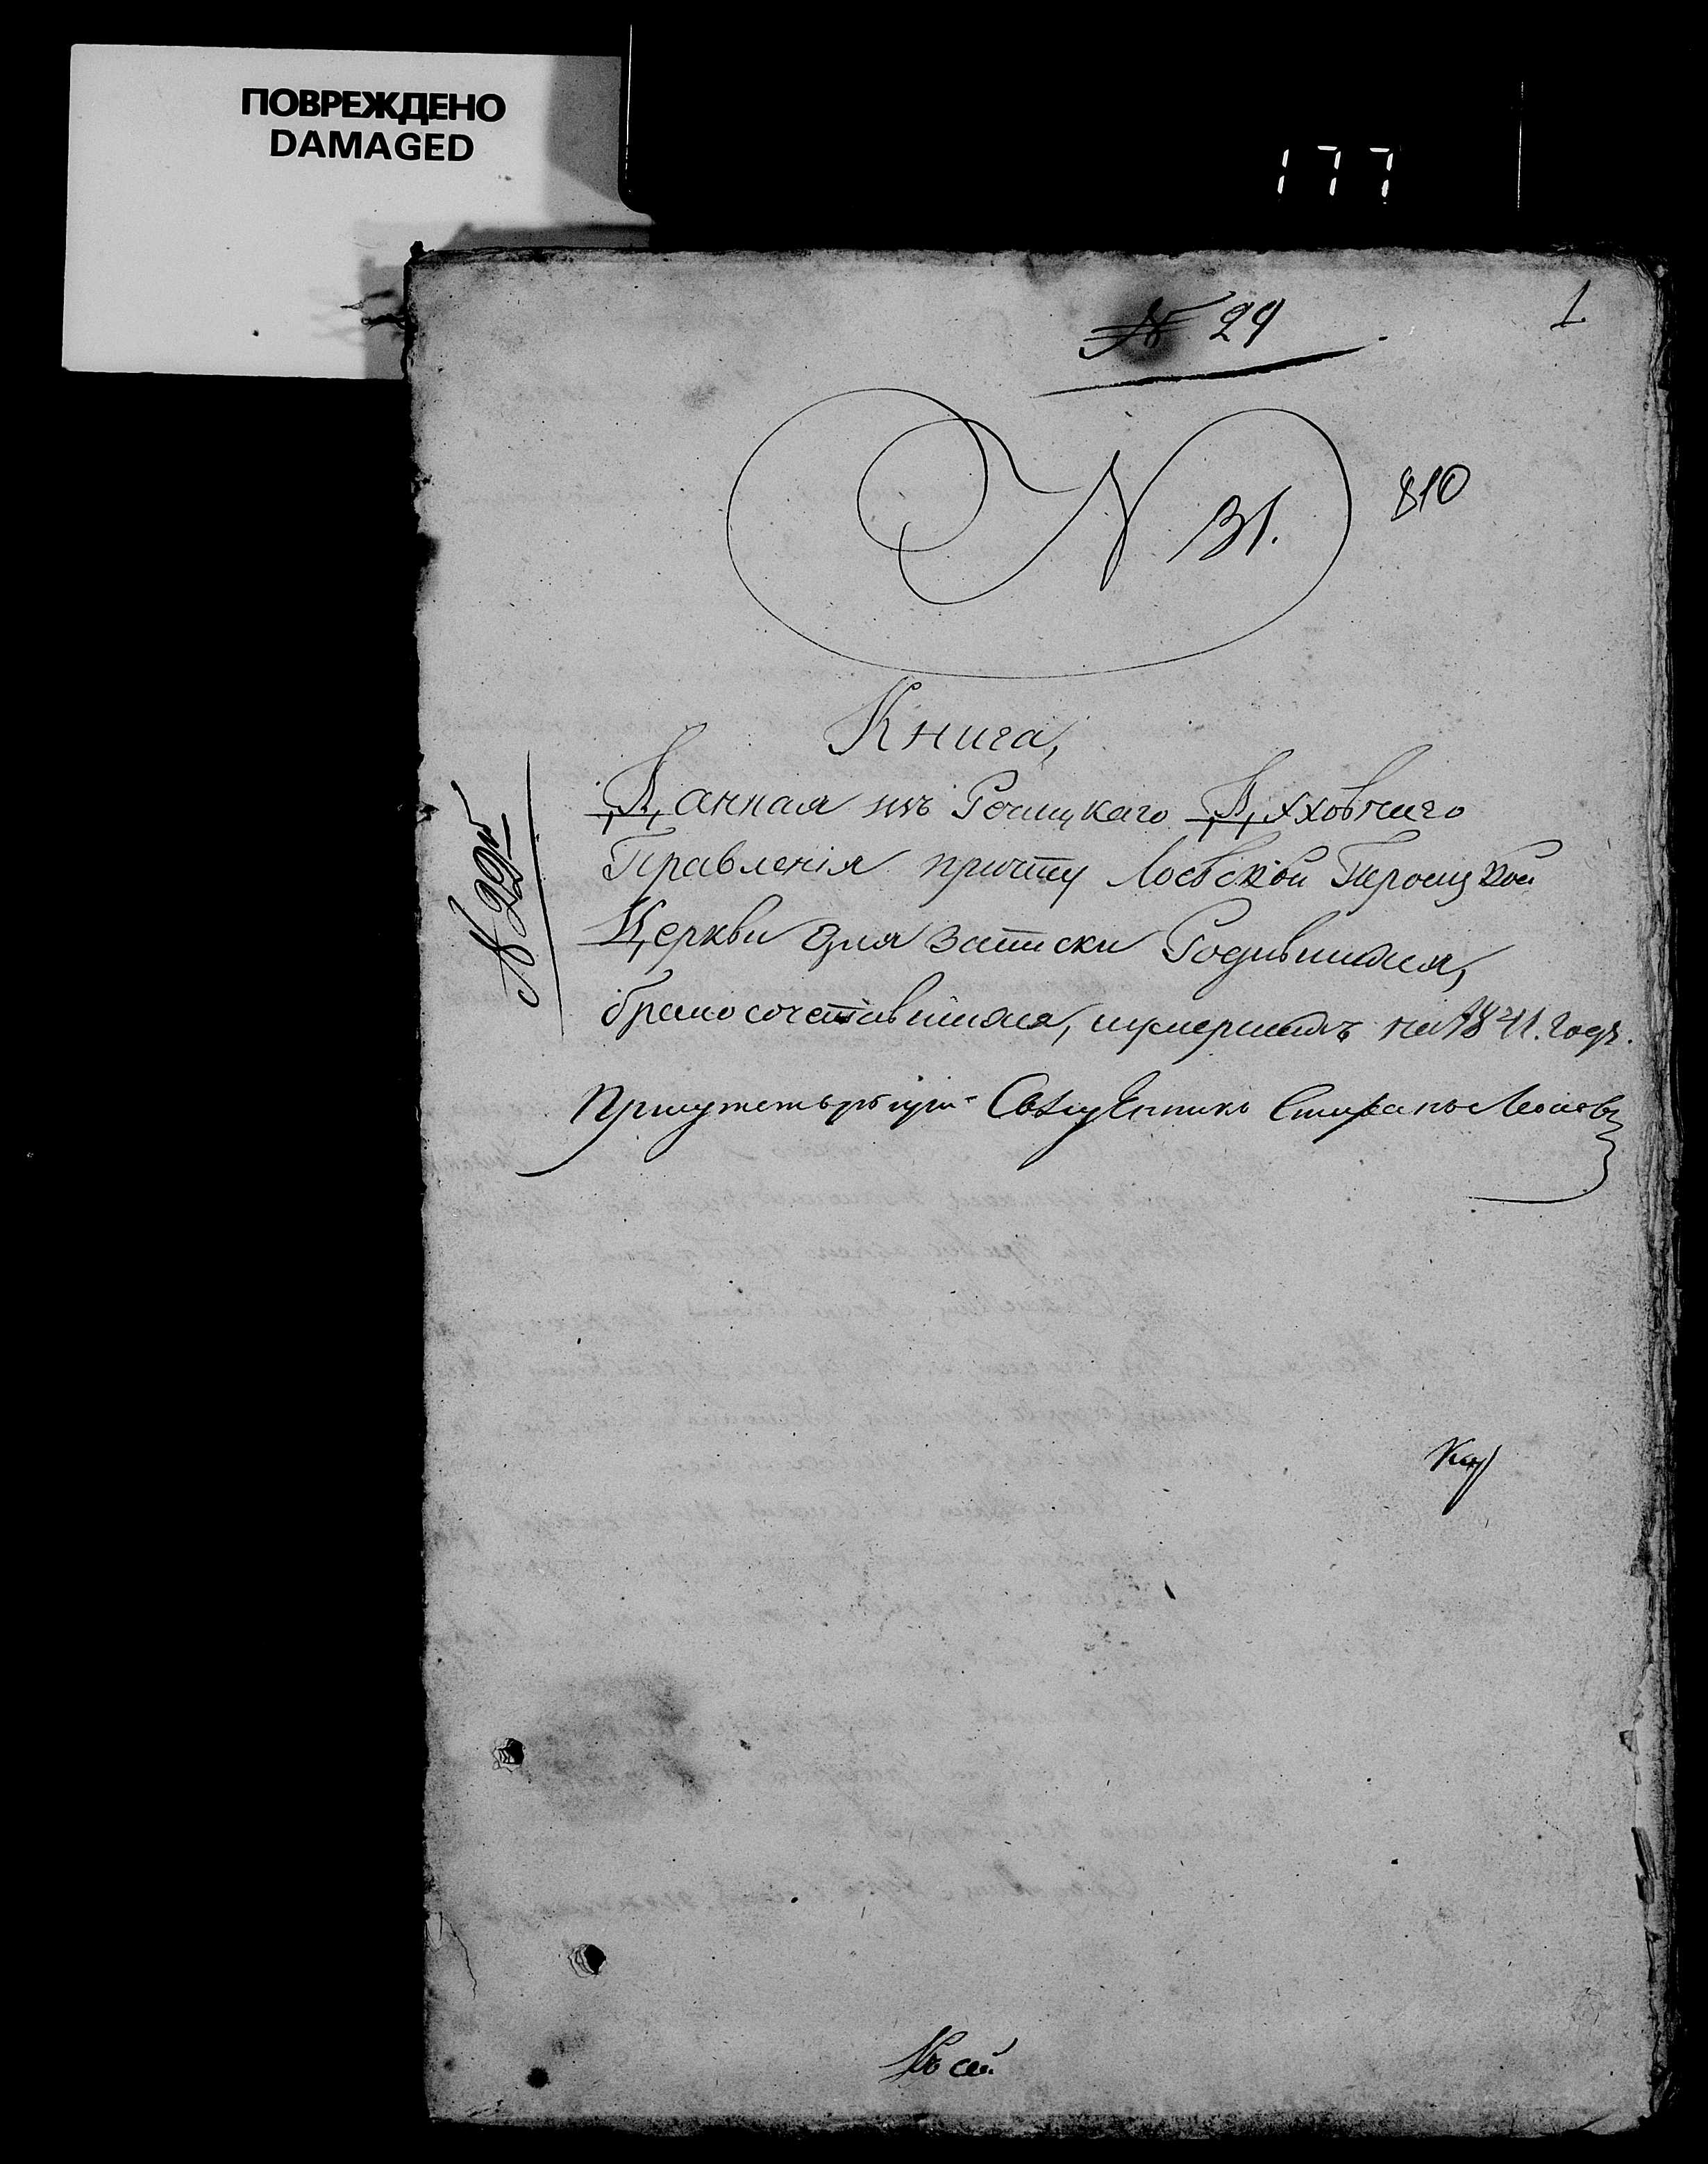 ПОВРЕЖДЕНО
DAMAGED
177
1
№ 29
№ 31.
810
№ 29й
Книга,
Данная изъ Речицкаго Духовнаго
Правленія причту Лоевской Троицкой
Церкви для записки Родившихся,
бракосочетавшихся, и умершихъ на 1841. годъ.
Священникъ Стефанъ
Къ сей